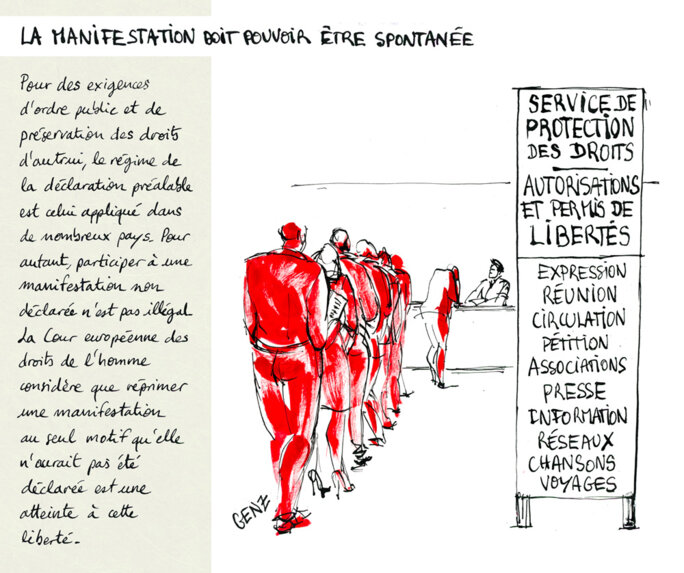 LA MANIFESTATION DOIT POUVOIR ÊTRE SPONTANÉE
Pour des exigences
d'ordre public et de
préservation des droits
d'autrui, le régime de
la déclaration préalable
est celui appliqué dans
de nombreux pays. Pour
autant, participer à une
manifestation non
déclarée n'est pas illégal
La Cour européenne des
droits de l'homme
considère que réprimer
une manifestation
au seul motif qu'elle
n'aurait pas été
déclarée est une
atteinte à cette
liberté.
SERVICE DE
PROTECTION
DES DROITS
AUTORISATIONS
ET PERMIS DE
LIBERTÉS
EXPRESSION
RÉUNION
CIRCULATION
PÉTITION
ASSOCIATIONS
PRESSE
INFORMATION
RÉSEAUX
CHANSONS
VOYAGES
GENZ